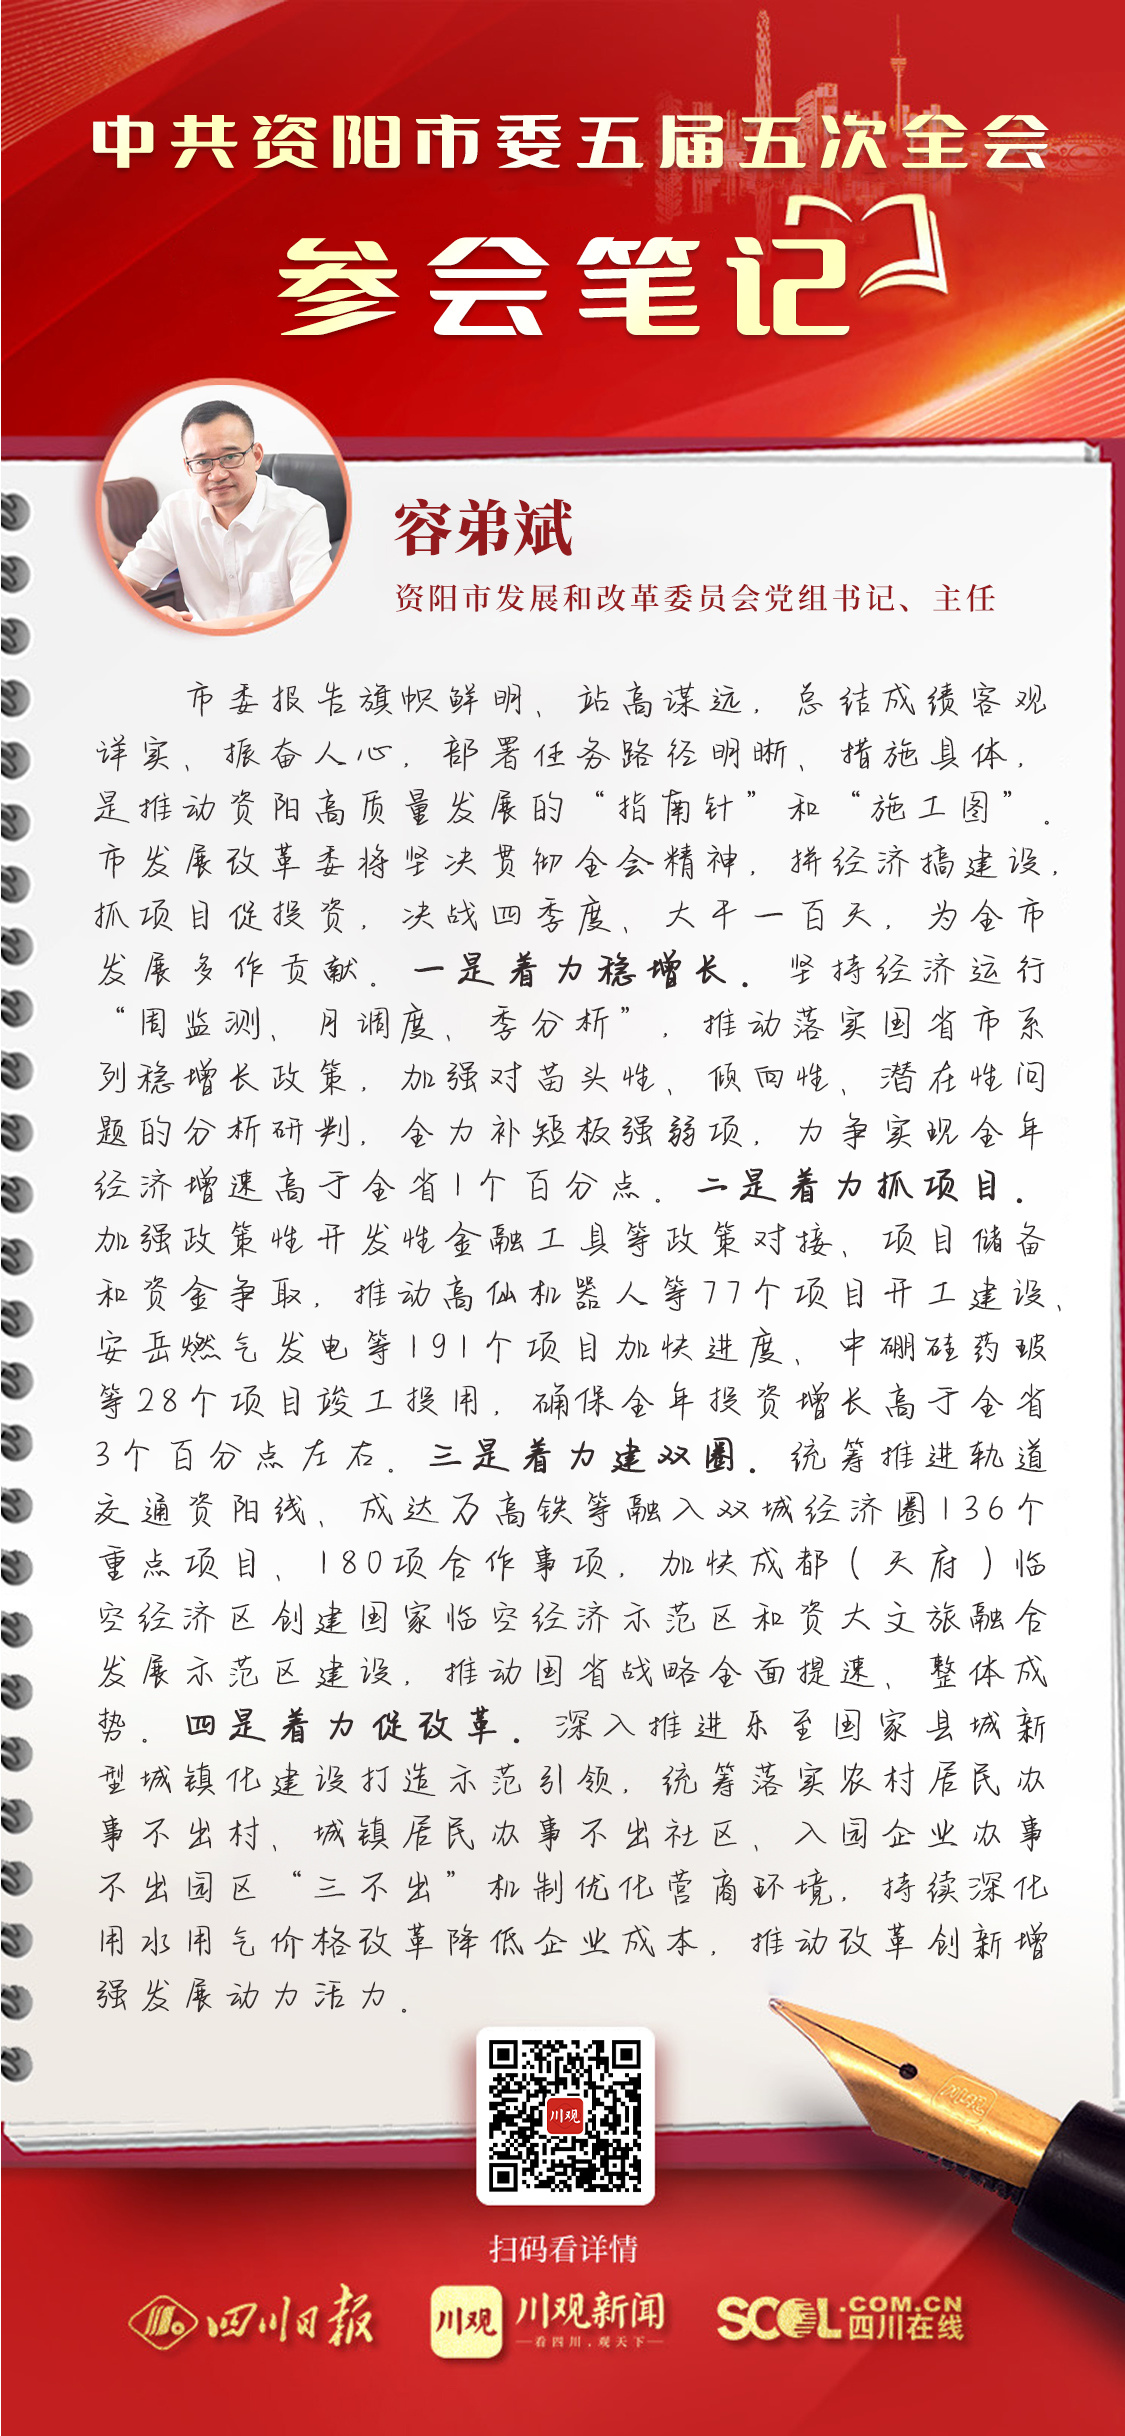 中共资阳市委五届五次全会
参会笔记
容弟斌
资阳市发展和改革委员会党组书记、主任
市委报告旗帜鲜明、站高谋远，总结成绩客观
详实、振奋人心，部署任务路径明晰、措施具体，
是推动资阳高质量发展的“指南针”和“施工图”。
市发展改革委将坚决贯彻全会精神，拼经济搞建设，
抓项目促投资，决战四季度、大干一百天，为全市
发展多作贡献。一是着力稳增长。坚持经济运行
“周监测、月调度、季分析”，推动落实国省市系
列稳增长政策，加强对苗头性、倾向性、潜在性问
题的分析研判，全力补短板强弱项，力争实现全年
经济增速高于全省1个百分点。二是着力抓项目。
加强政策性开发性金融工具等政策对接、项目储备
和资金争取，推动高仙机器人等77个项目开工建设、
安岳燃气发电等191个项目加快进度、中硼硅药玻
等28个项目竣工投用，确保全年投资增长高于全省
3个百分点左右。三是着力建双圈。统筹推进轨道
交通资阳线、成达万高铁等融入双城经济圈136个
重点项目、180项合作事项，加快成都（天府）临
空经济区创建国家临空经济示范区和资大文旅融合
发展示范区建设，推动国省战略全面提速、整体成
势。四是着力促改革。深入推进乐至国家县城新
型城镇化建设打造示范引领，统筹落实农村居民办
事不出村、城镇居民办事不出社区、入园企业办事
不出园区“三不出”机制优化营商环境，持续深化
用水用气价格改革降低企业成本，推动改革创新增
强发展动力活力。
川观
扫码看详情
四川日报
川观
川观新闻
看四川，观天下
SCOL.COM.CN
四川在线